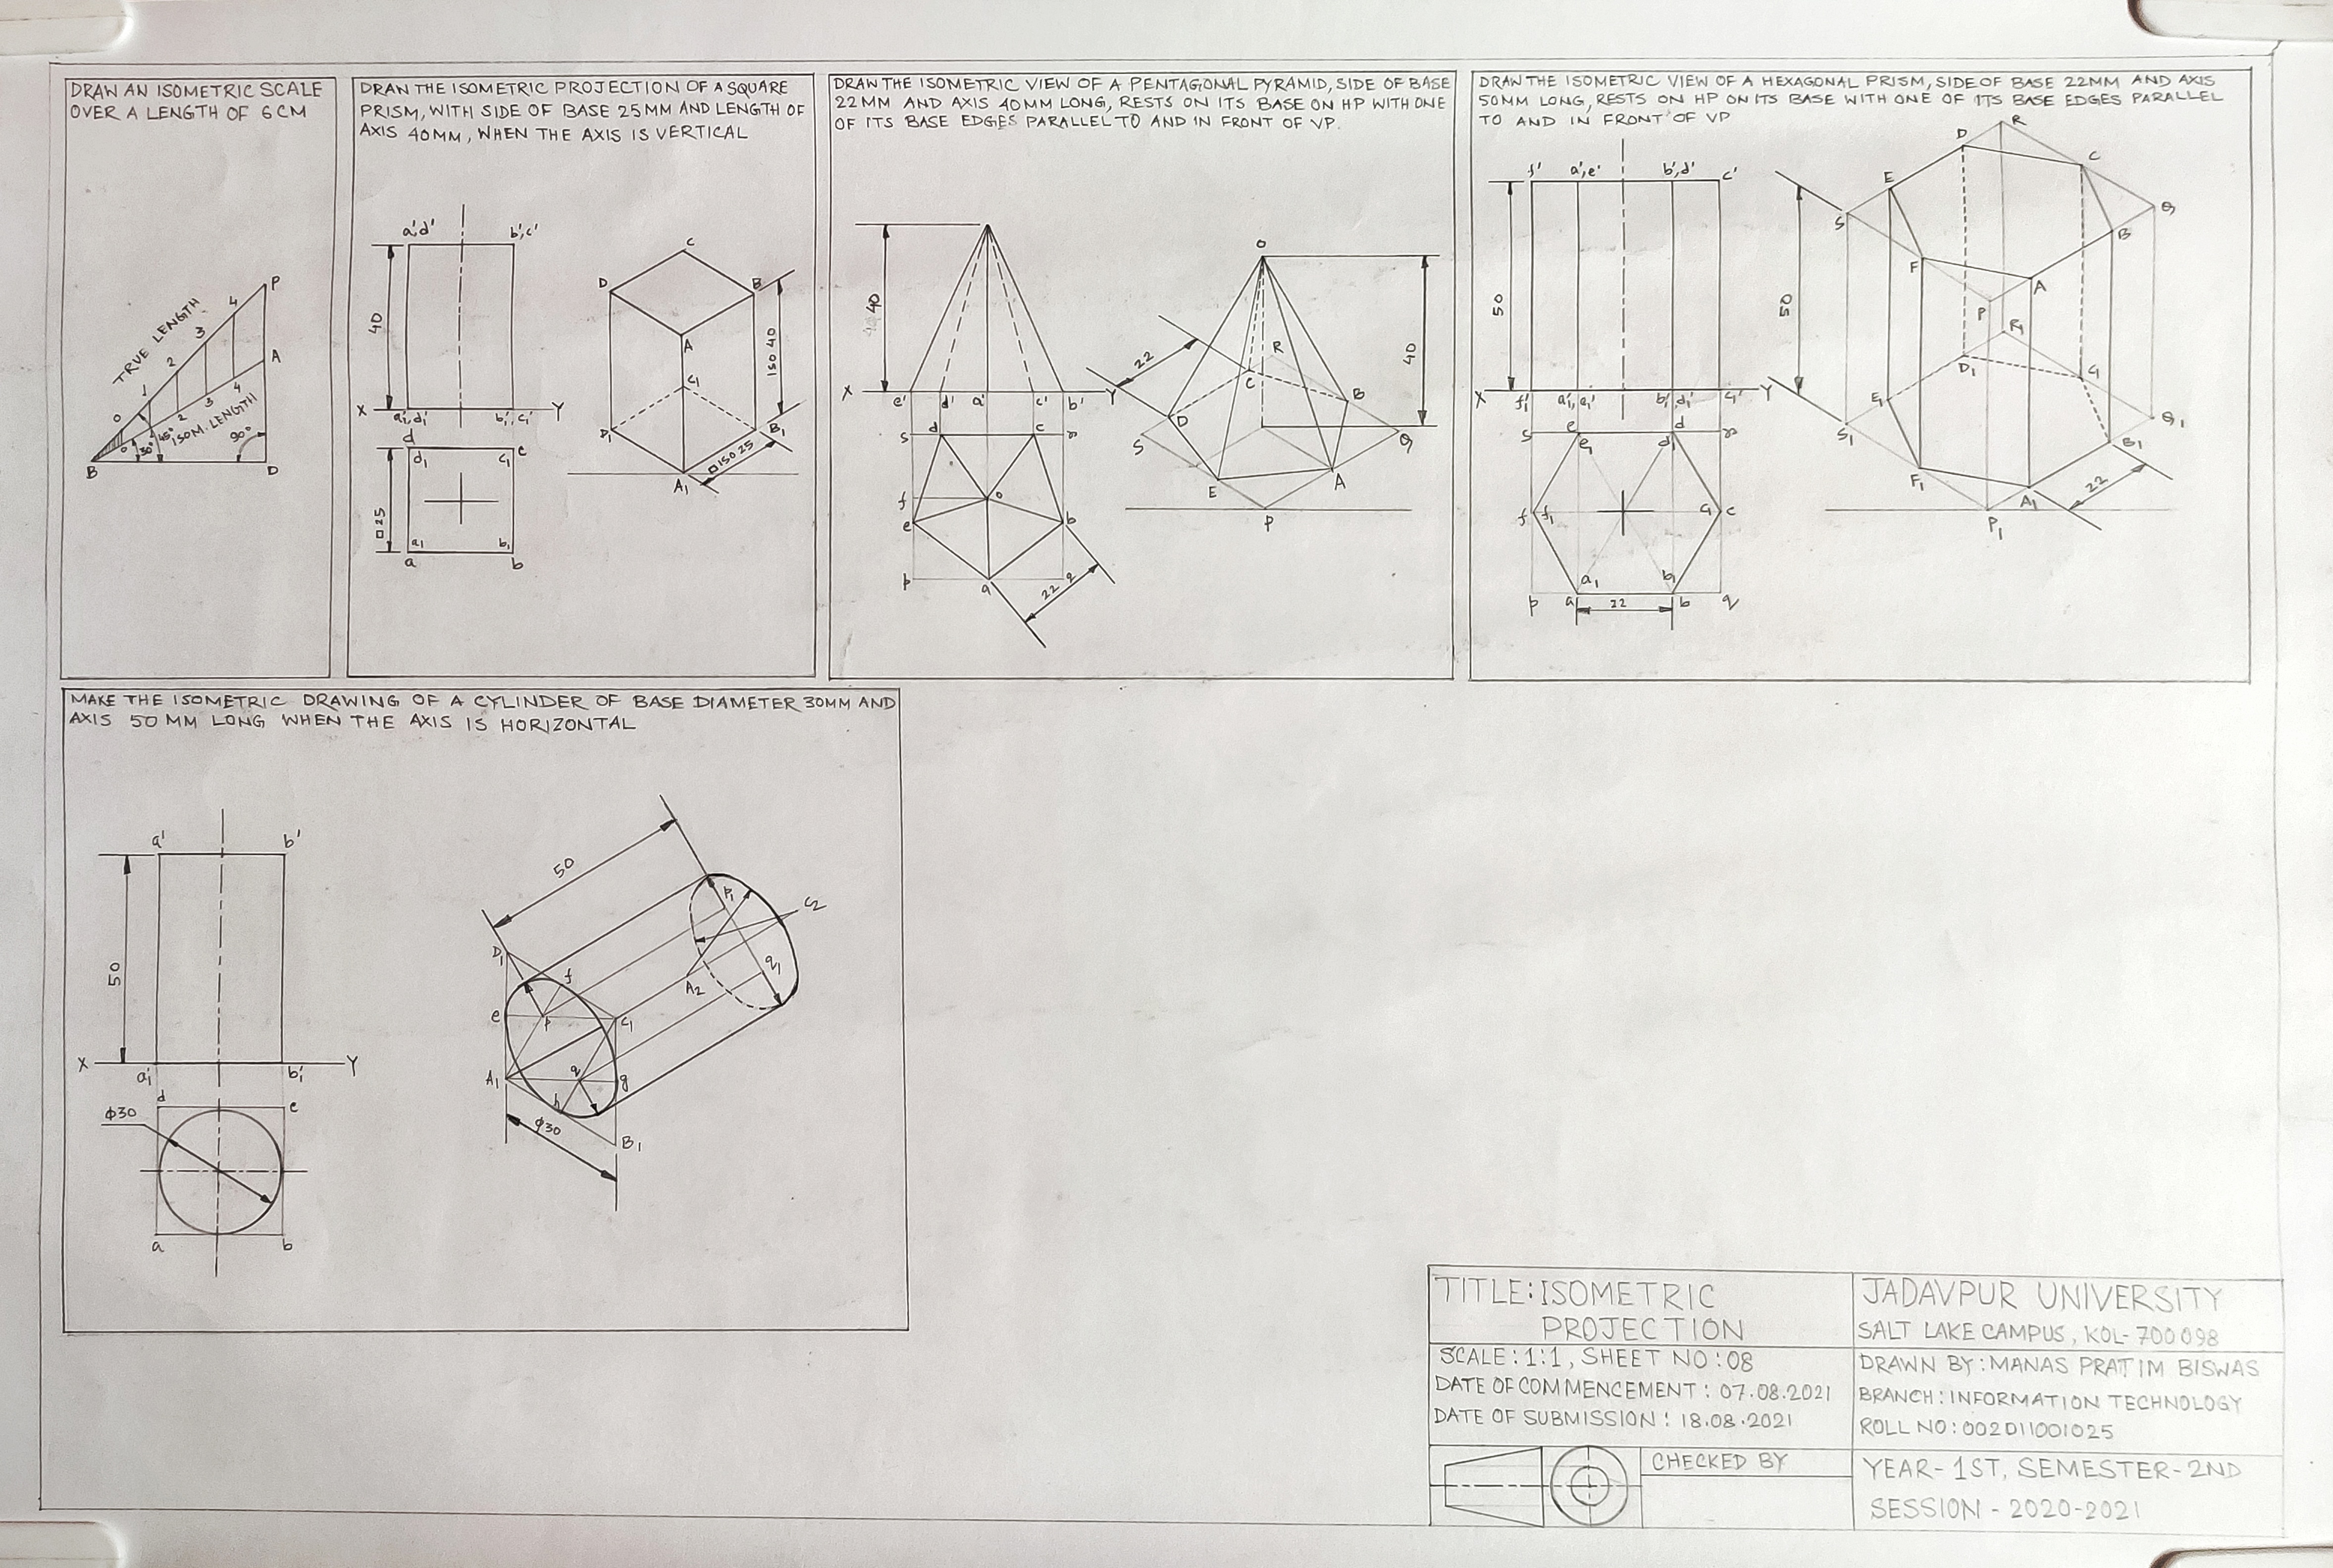 DRAW AN ISOMETRIC SCALE
OVER A LENGTH OF 6 CM
TRUE LENGTH
ISOM. LENGTH
0 1 2 3 4
0 2 3 4
30° 45° 90°
B D A P
DRAW THE ISOMETRIC PROJECTION OF A SQUARE
PRISM, WITH SIDE OF BASE 25MM AND LENGTH OF
AXIS 40MM, WHEN THE AXIS IS VERTICAL
a'd' b',c'
40
X a₁',d₁' b₁',c₁' Y
d c
d₁ c₁
□25
a₁ b₁
a b
C
D B
A
C₁
ISO 40
D₁ B₁
□ISO 25
A₁
DRAW THE ISOMETRIC VIEW OF A PENTAGONAL PYRAMID, SIDE OF BASE
22MM AND AXIS 40MM LONG, RESTS ON ITS BASE ON HP WITH ONE
OF ITS BASE EDGES PARALLEL TO AND IN FRONT OF VP.
40
X e' d' a' c' b' Y
s d c r
f o
e b
p a
22
O
22
R
C B
40
D
S Q
E A
P
DRAW THE ISOMETRIC VIEW OF A HEXAGONAL PRISM, SIDE OF BASE 22MM AND AXIS
50MM LONG, RESTS ON HP ON ITS BASE WITH ONE OF ITS BASE EDGES PARALLEL
TO AND IN FRONT OF VP
f' a',e' b',d' c'
50
X f₁' a₁',e₁' b₁',d₁' c₁' Y
s e d r
e₁ d₁
f f₁ c₁ c
a₁ b₁
p a 22 b q
D R
C
E
S Q
B
F
A
50
P R₁
D₁ C₁
E₁
S₁ Q₁
B₁
F₁ A₁
22
P₁
MAKE THE ISOMETRIC DRAWING OF A CYLINDER OF BASE DIAMETER 30MM AND
AXIS 50 MM LONG WHEN THE AXIS IS HORIZONTAL
a' b'
50
X a₁' b₁' Y
d c
ϕ30
a b
50
P₁ C₂
D₁ f
q₁
A₂
e p C₁
A₁ q g
h
ϕ30 B₁
TITLE: ISOMETRIC
PROJECTION
SCALE: 1:1, SHEET NO: 08
DATE OF COMMENCEMENT: 07.08.2021
DATE OF SUBMISSION: 18.08.2021
CHECKED BY
JADAVPUR UNIVERSITY
SALT LAKE CAMPUS, KOL-700098
DRAWN BY: MANAS PRATIM BISWAS
BRANCH: INFORMATION TECHNOLOGY
ROLL NO: 002011001025
YEAR- 1ST, SEMESTER-2ND
SESSION - 2020-2021